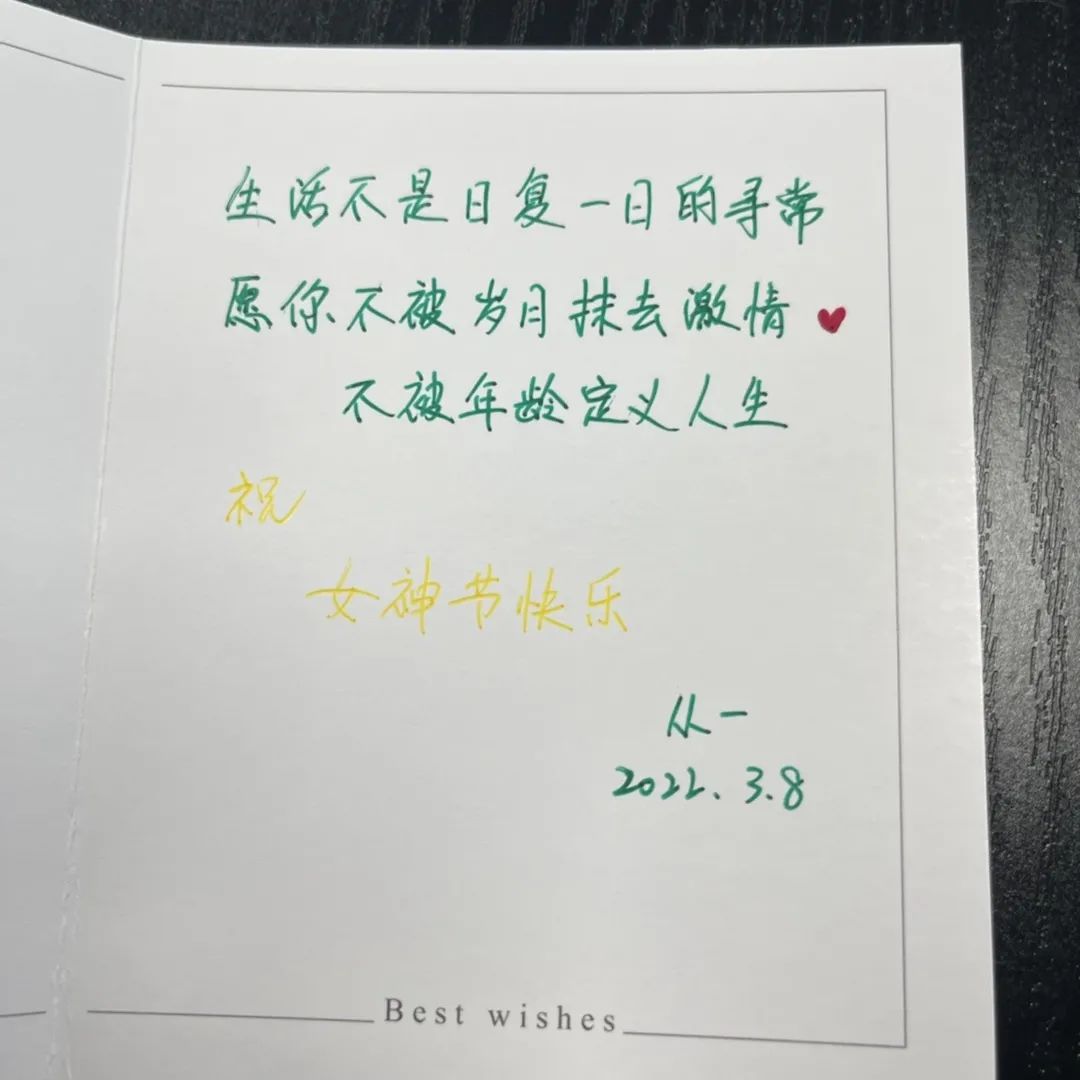 生活不是日复一日的寻常
愿你不被岁月抹去激情
不被年龄定义人生
祝
女神节快乐
从一
2022.3.8
Best wishes